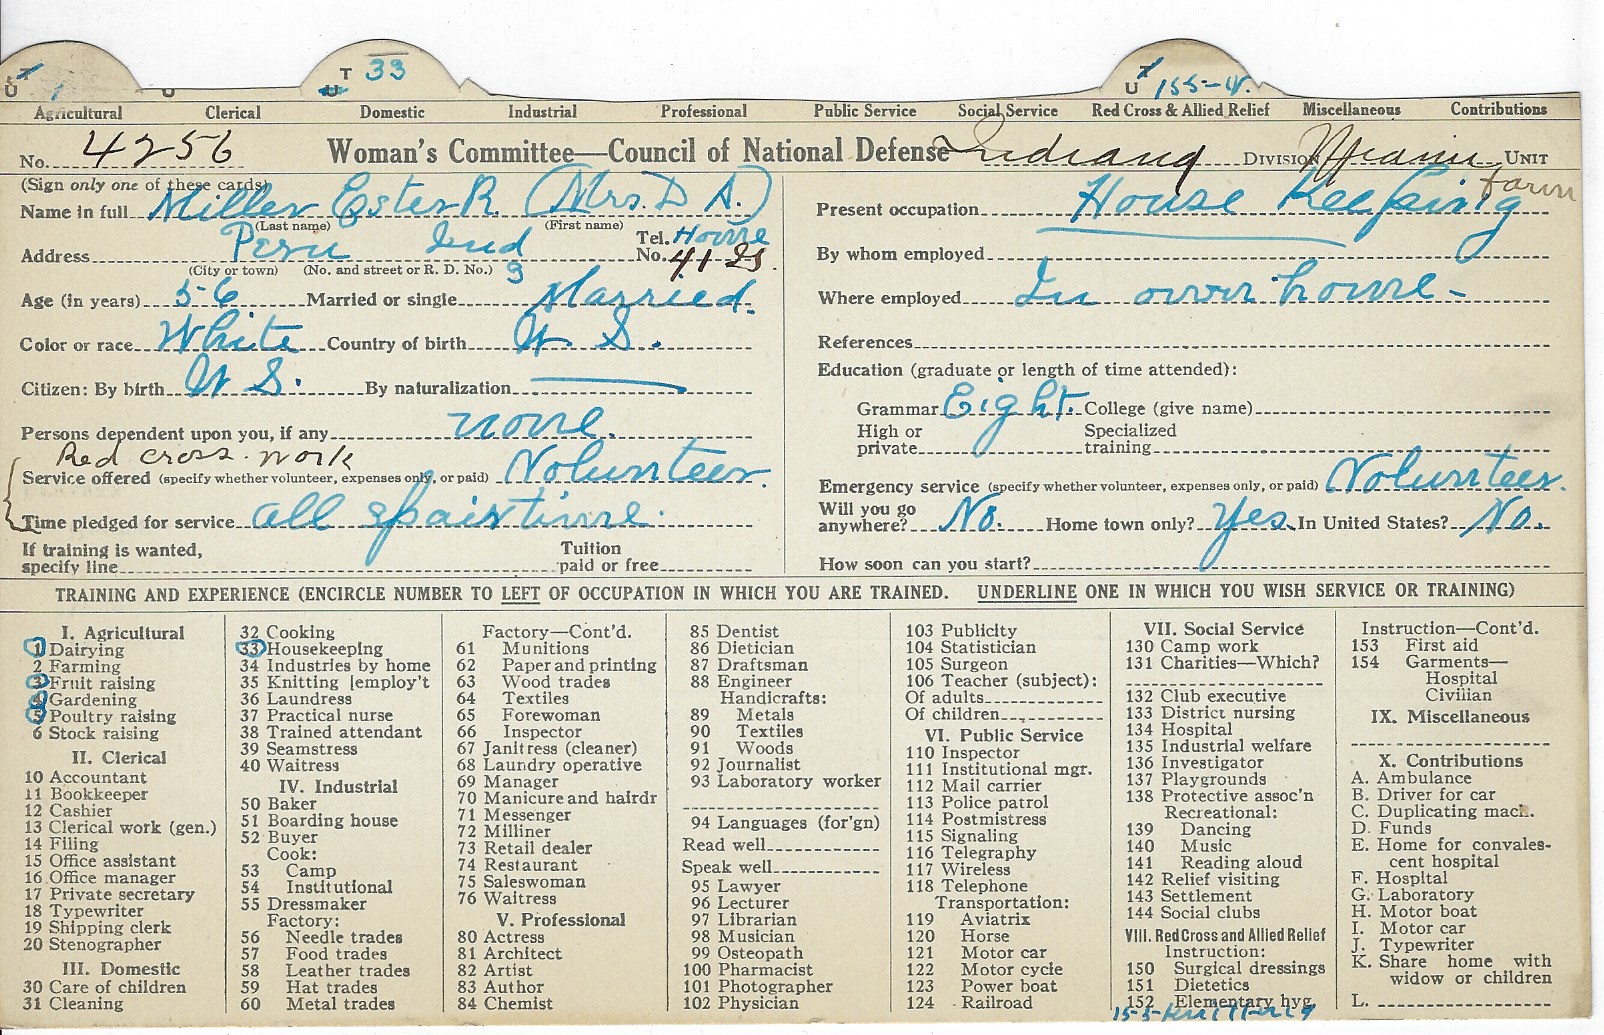 T U 1 U T U 33 T U 155-W.
Agricultural Clerical Domestic Industrial Professional Public Service Social Service Red Cross & Allied Relief Miscellaneous Contributions
No. 4256 Woman's Committee—Council of National Defense Indiana Division Miami Unit
(Sign only one of these cards)
Name in full Miller Ester R. (Mrs. D A.)
(Last name) (First name)
Address Peru Ind Tel. No. Home 41 25.
(City or town) (No. and street or R. D. No.) 9
Age (in years) 56 Married or single Married.
Color or race White Country of birth U. S.
Citizen: By birth U S. By naturalization
Persons dependent upon you, if any none.
Red cross. work
Service offered (specify whether volunteer, expenses only, or paid) Volunteer.
Time pledged for service all spair time.
If training is wanted, specify line Tuition paid or free
Present occupation House Keeping farm
By whom employed
Where employed In owr home-
References
Education (graduate or length of time attended):
Grammar Eight. College (give name)
High or private Specialized training
Emergency service (specify whether volunteer, expenses only, or paid) Volunteer.
Will you go anywhere? No. Home town only? Yes. In United States? No.
How soon can you start?
TRAINING AND EXPERIENCE (ENCIRCLE NUMBER TO LEFT OF OCCUPATION IN WHICH YOU ARE TRAINED. UNDERLINE ONE IN WHICH YOU WISH SERVICE OR TRAINING)
I. Agricultural
1 Dairying
2 Farming
3 Fruit raising
4 Gardening
5 Poultry raising
6 Stock raising
II. Clerical
10 Accountant
11 Bookkeeper
12 Cashier
13 Clerical work (gen.)
14 Filing
15 Office assistant
16 Office manager
17 Private secretary
18 Typewriter
19 Shipping clerk
20 Stenographer
III. Domestic
30 Care of children
31 Cleaning
32 Cooking
33 Housekeeping
34 Industries by home
35 Knitting [employ't
36 Laundress
37 Practical nurse
38 Trained attendant
39 Seamstress
40 Waitress
IV. Industrial
50 Baker
51 Boarding house
52 Buyer
Cook:
53 Camp
54 Institutional
55 Dressmaker
Factory:
56 Needle trades
57 Food trades
58 Leather trades
59 Hat trades
60 Metal trades
Factory—Cont'd.
61 Munitions
62 Paper and printing
63 Wood trades
64 Textiles
65 Forewoman
66 Inspector
67 Janitress (cleaner)
68 Laundry operative
69 Manager
70 Manicure and hairdr
71 Messenger
72 Milliner
73 Retail dealer
74 Restaurant
75 Saleswoman
76 Waitress
V. Professional
80 Actress
81 Architect
82 Artist
83 Author
84 Chemist
85 Dentist
86 Dietician
87 Draftsman
88 Engineer
Handicrafts:
89 Metals
90 Textiles
91 Woods
92 Journalist
93 Laboratory worker
94 Languages (for'gn)
Read well
Speak well
95 Lawyer
96 Lecturer
97 Librarian
98 Musician
99 Osteopath
100 Pharmacist
101 Photographer
102 Physician
103 Publicity
104 Statistician
105 Surgeon
106 Teacher (subject):
Of adults
Of children
VI. Public Service
110 Inspector
111 Institutional mgr.
112 Mail carrier
113 Police patrol
114 Postmistress
115 Signaling
116 Telegraphy
117 Wireless
118 Telephone
Transportation:
119 Aviatrix
120 Horse
121 Motor car
122 Motor cycle
123 Power boat
124 Railroad
VII. Social Service
130 Camp work
131 Charities—Which?
132 Club executive
133 District nursing
134 Hospital
135 Industrial welfare
136 Investigator
137 Playgrounds
138 Protective assoc'n
Recreational:
139 Dancing
140 Music
141 Reading aloud
142 Relief visiting
143 Settlement
144 Social clubs
VIII. Red Cross and Allied Relief
Instruction:
150 Surgical dressings
151 Dietetics
152 Elementary hyg.
155-Knitting
Instruction—Cont'd.
153 First aid
154 Garments—
Hospital
Civilian
IX. Miscellaneous
X. Contributions
A. Ambulance
B. Driver for car
C. Duplicating mach.
D. Funds
E. Home for convales-
cent hospital
F. Hospital
G. Laboratory
H. Motor boat
I. Motor car
J. Typewriter
K. Share home with
widow or children
L.